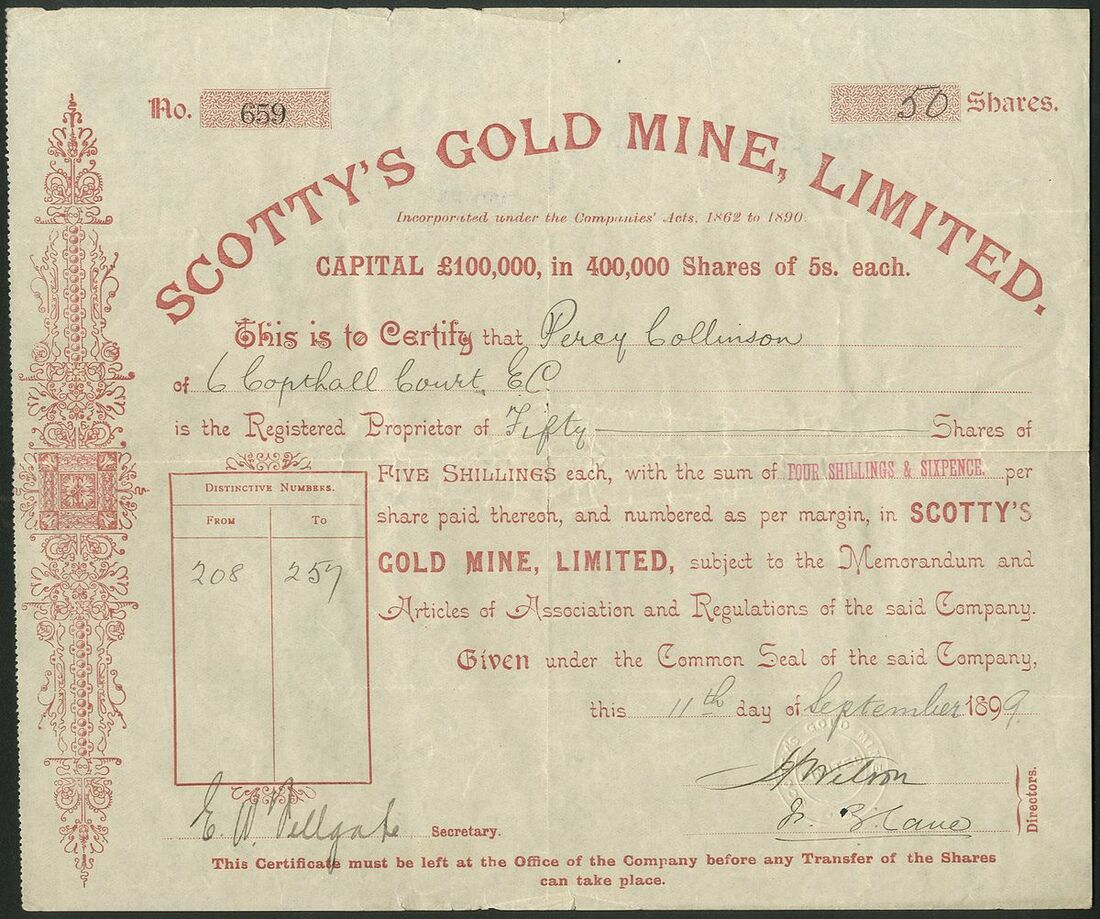 No. 659
50 Shares.
SCOTTY'S GOLD MINE, LIMITED.
Incorporated under the Companies' Acts, 1862 to 1890.
CAPITAL £100,000, in 400,000 Shares of 5s. each.
This is to Certify that Percy Collinson
of 6 Copthall Court, EC
is the Registered Proprietor of Fifty Shares of
FIVE SHILLINGS each, with the sum of FOUR SHILLINGS & SIXPENCE. per
share paid thereon, and numbered as per margin, in SCOTTY'S
GOLD MINE, LIMITED, subject to the Memorandum and
Articles of Association and Regulations of the said Company.
DISTINCTIVE NUMBERS.
FROM TO
208 257
Given under the Common Seal of the said Company,
this 11th day of September 1899.
Wilson
Directors.
E. W. Secretary.
This Certificate must be left at the Office of the Company before any Transfer of the Shares
can take place.